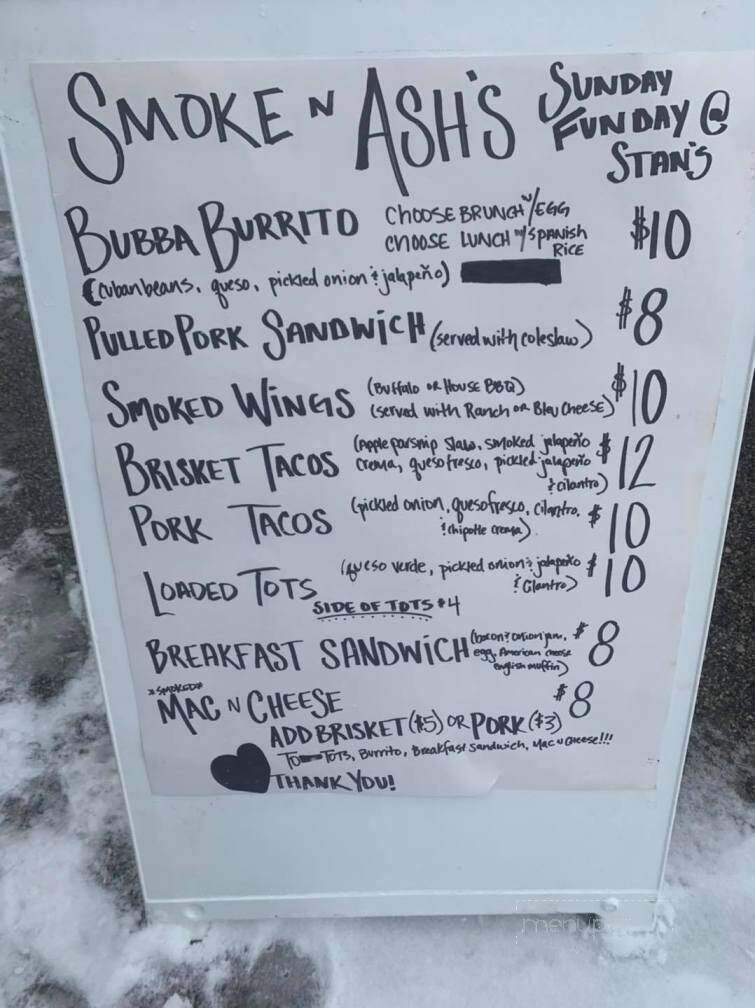 SMOKE N ASH'S
SUNDAY
FUNDAY @
STAN'S
BUBBA BURRITO CHOOSE BRUNCH W/EGG
CHOOSE LUNCH W/SPANISH
RICE
$10
(cuban beans, queso, pickled onion & jalapeño)
PULLED PORK SANDWICH (served with coleslaw) $8
SMOKED WINGS (BUFFALO OR HOUSE BBQ)
(served with Ranch OR Bleu Cheese) $10
BRISKET TACOS (Apple parsnip slaw, smoked jalapeño
crema, queso fresco, pickled jalapeño
& cilantro) $12
PORK TACOS (pickled onion, queso fresco, cilantro,
& chipotle crema) $10
LOADED TOTS (queso verde, pickled onion & jalapeño
& Cilantro) $10
SIDE OF TOTS $4
BREAKFAST SANDWICH (bacon & onion jam,
egg, American cheese
english muffin) $8
*SMOKED*
MAC N CHEESE $8
ADD BRISKET ($5) OR PORK ($3)
TO TOTS, Burrito, Breakfast Sandwich, Mac N Cheese!!!
THANK YOU!